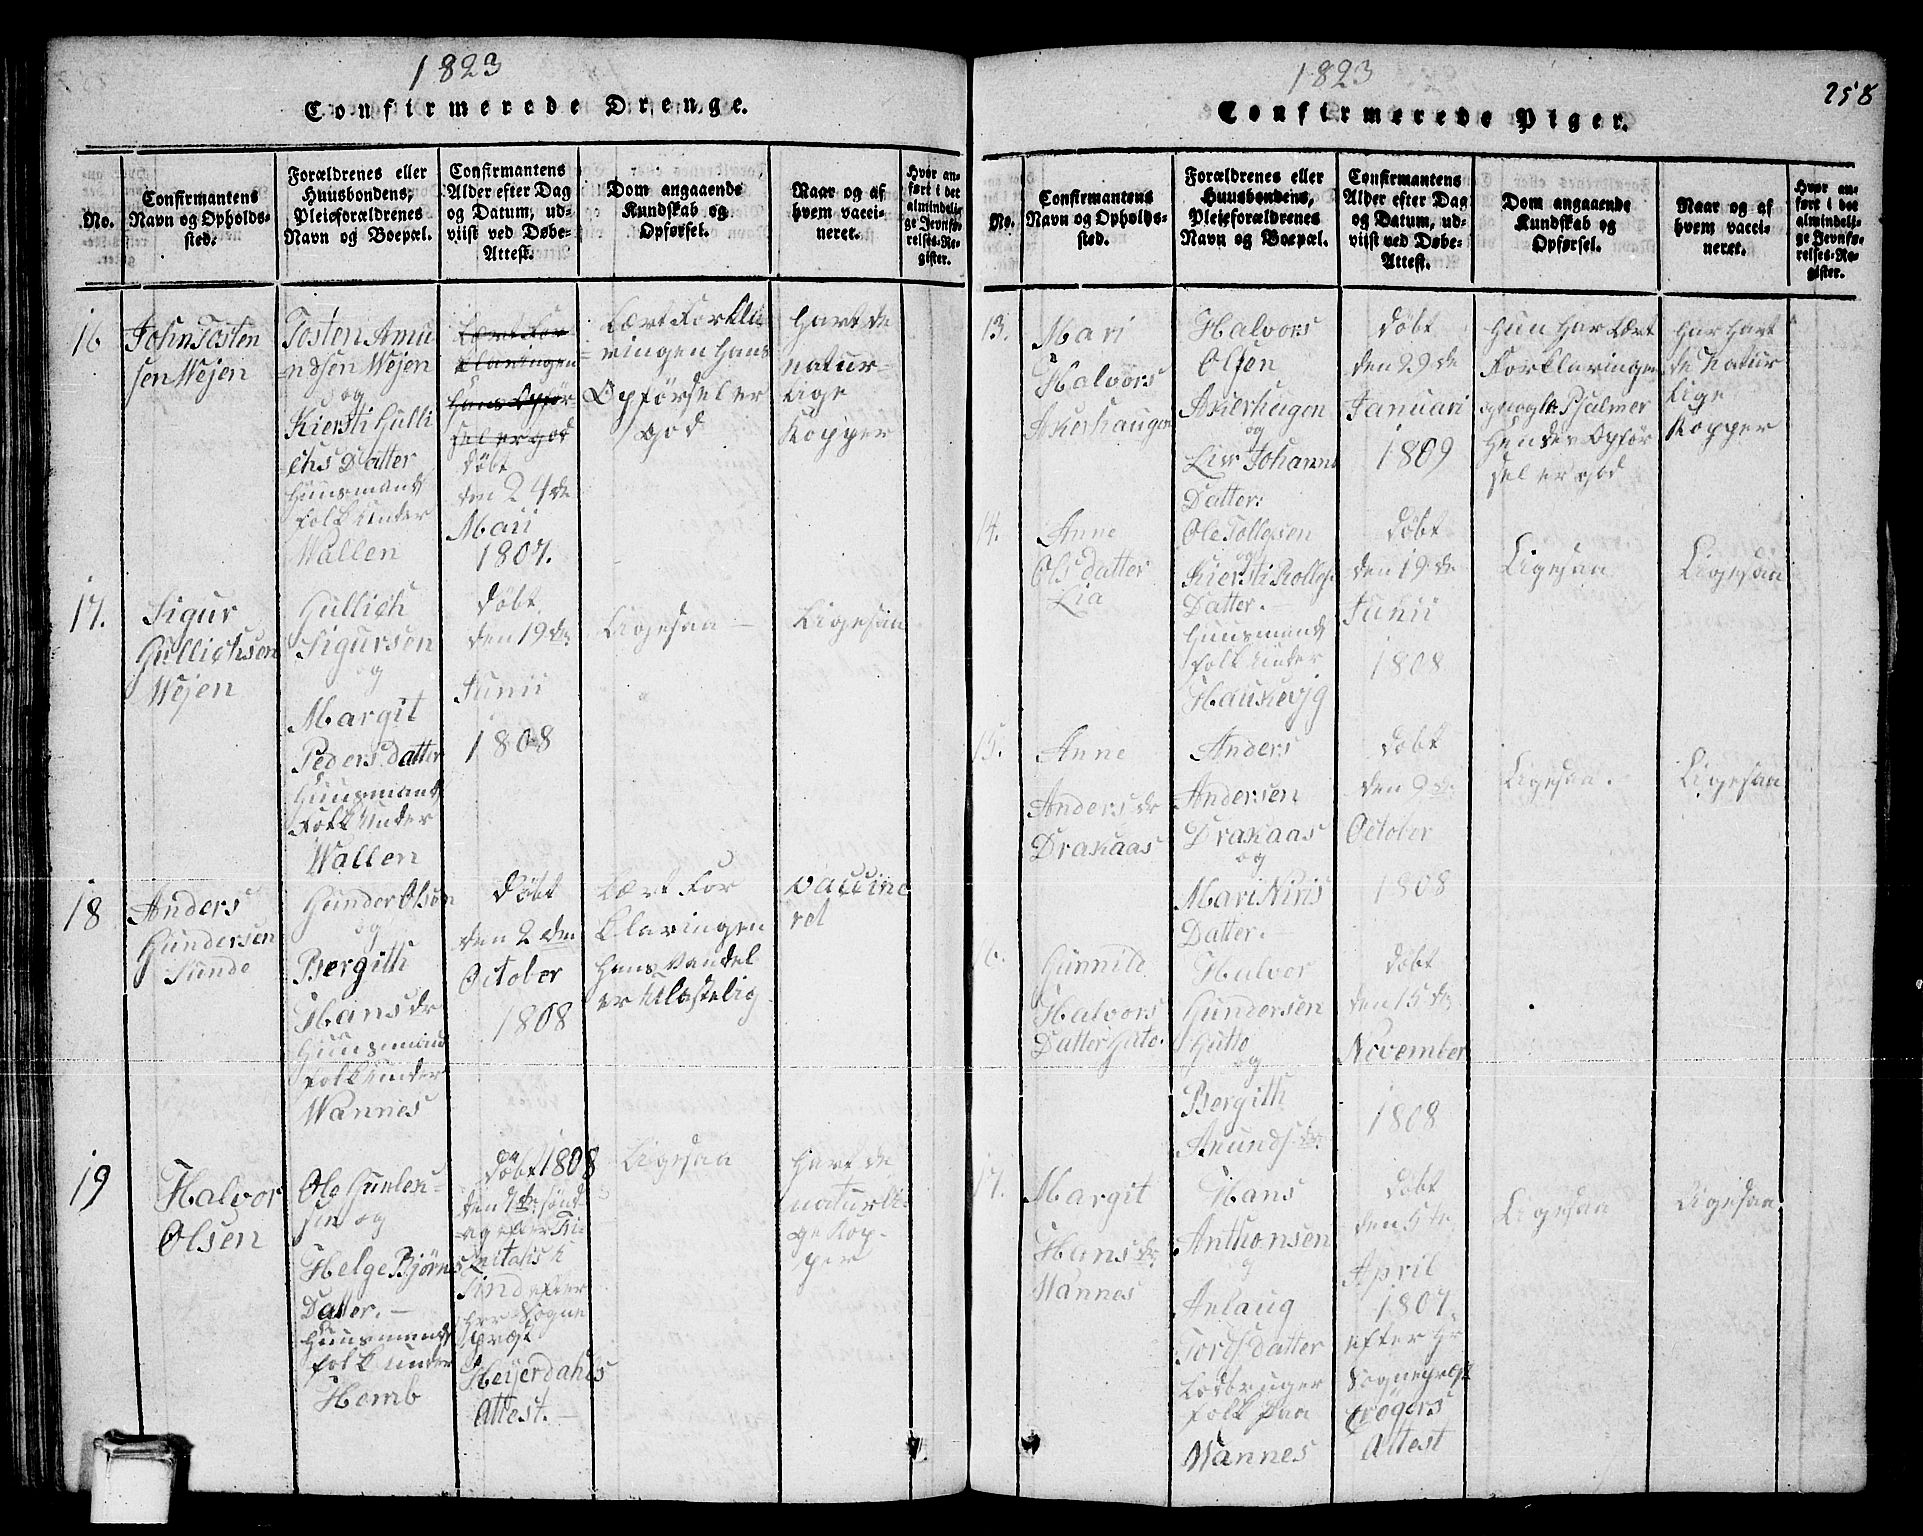 1823
Confirmerede Drenge.
No.
Confirmantens
Navn og Opholds-
sted.
Forældrenes eller
Huusbondens,
Pleieforældrenes
Navn og Boepæl.
Confirmantens
Alder efter Dag
og Datum, ud-
viist ved Døbe-
Attest.
Dom angaaende
Kundskab og
Opførsel.
Naar og af
hvem vacci-
neret.
Hvor an-
ført i det
almindeli-
ge Jevnfø-
relses-Re-
gister.
16
John Tosten
sen Wejen
Tosten Amu
=ndsen Wejen
og
Kiersti Gulli
chs Datter
Huusmands
folk under
Wallen
Lært For
klaringen
Hans Opför
sel er god
döbt
den 24de
Maii
1807.
Lært Forkla
=ringen Hans
Opförsel er
god
Hart de
natur-
lige
Kopper
17.
Sigur
Gullichsen
Wejen
Gullich
Sigursen
og
Margit
Peders datter
Huusmands
Folk under
Wallen
döbt
den 19de
Junii
1808
Ligesaa
Ligesaa
18
Anders
Gundersen
Sunde
Gunder Olsen
og
Bergith
Hans dr
Huusmands
folk under
Wannes
Döbt
den 2den
October
1808
Lært For
klaringen
Hans Vandel
er ulastelig
vaccine
ret
19
Halvor
Olsen
Ole Gunlek-
sen og
Helge Björns
Datter.-
Huusmands
folk under
Homb
döbt 1808
den 1ste sönd
ag efter Tri
nitatis
efter
Her Sogne
præst
Heijerdahls
Attest.-
Ligesaa
Hart de
naturli
ge Kop-
per
1823
258
Confirmerede Piger.
No.
Confirmantens
Navn og Opholds-
sted.
Forældrenes eller
Huusbondens,
Pleieforældrenes
Navn og Boepæl.
Confirmantens
Alder efter Dag
og Datum, ud-
viist ved Døbe-
Attest.
Dom angaaende
Kundskab og
Opførsel.
Naar og af
hvem vacci-
neret.
Hvor an-
ført i det
almindeli-
ge Jevnfø-
relses-Re-
gister.
13.
Mari
Halvors
Akerhaugen
Halvors
Olsen
Akerhugen
og
Liv Johanns
Datter:
döbt
den 29de
Januari
1809
Hun Har Lært
Forklaringen
og nogle Psalmer
Hendes Opför
sel er god
Har Hart
de Natur
lige
Kopper
14.
Anne
Ols datter
Lia
Ole Tollefsen
og
Kiersti Rollefs
Datter.-
Huusmands
folk under
Haukevjg
döbt
den 19de
Junii
1808
Ligesaa
Ligesaa
15.
Anne
Anders dr
Drakaas
Anders
Andersen
Drakaas
og
Mari Niris
Datter.
döbt
den 2de
October
1808
Ligesaa.
Ligesaa
16.
Gunnild
Halvors
Datter Gate.
Halvor
Gundersen
Gutte
og
Bergith
Anunds dr.
döbt
den 15de
November
1808
17.
Margit
Hans dr
Wannes
Hans
Anthonsen
og
Anlaug
Tords datter
Lodbruger
folk paa
Wannes
döbt
den 5te
April
1807.
efter Hr
Sognepræst
Crögers
Attest
Ligesaa
Ligesaa.